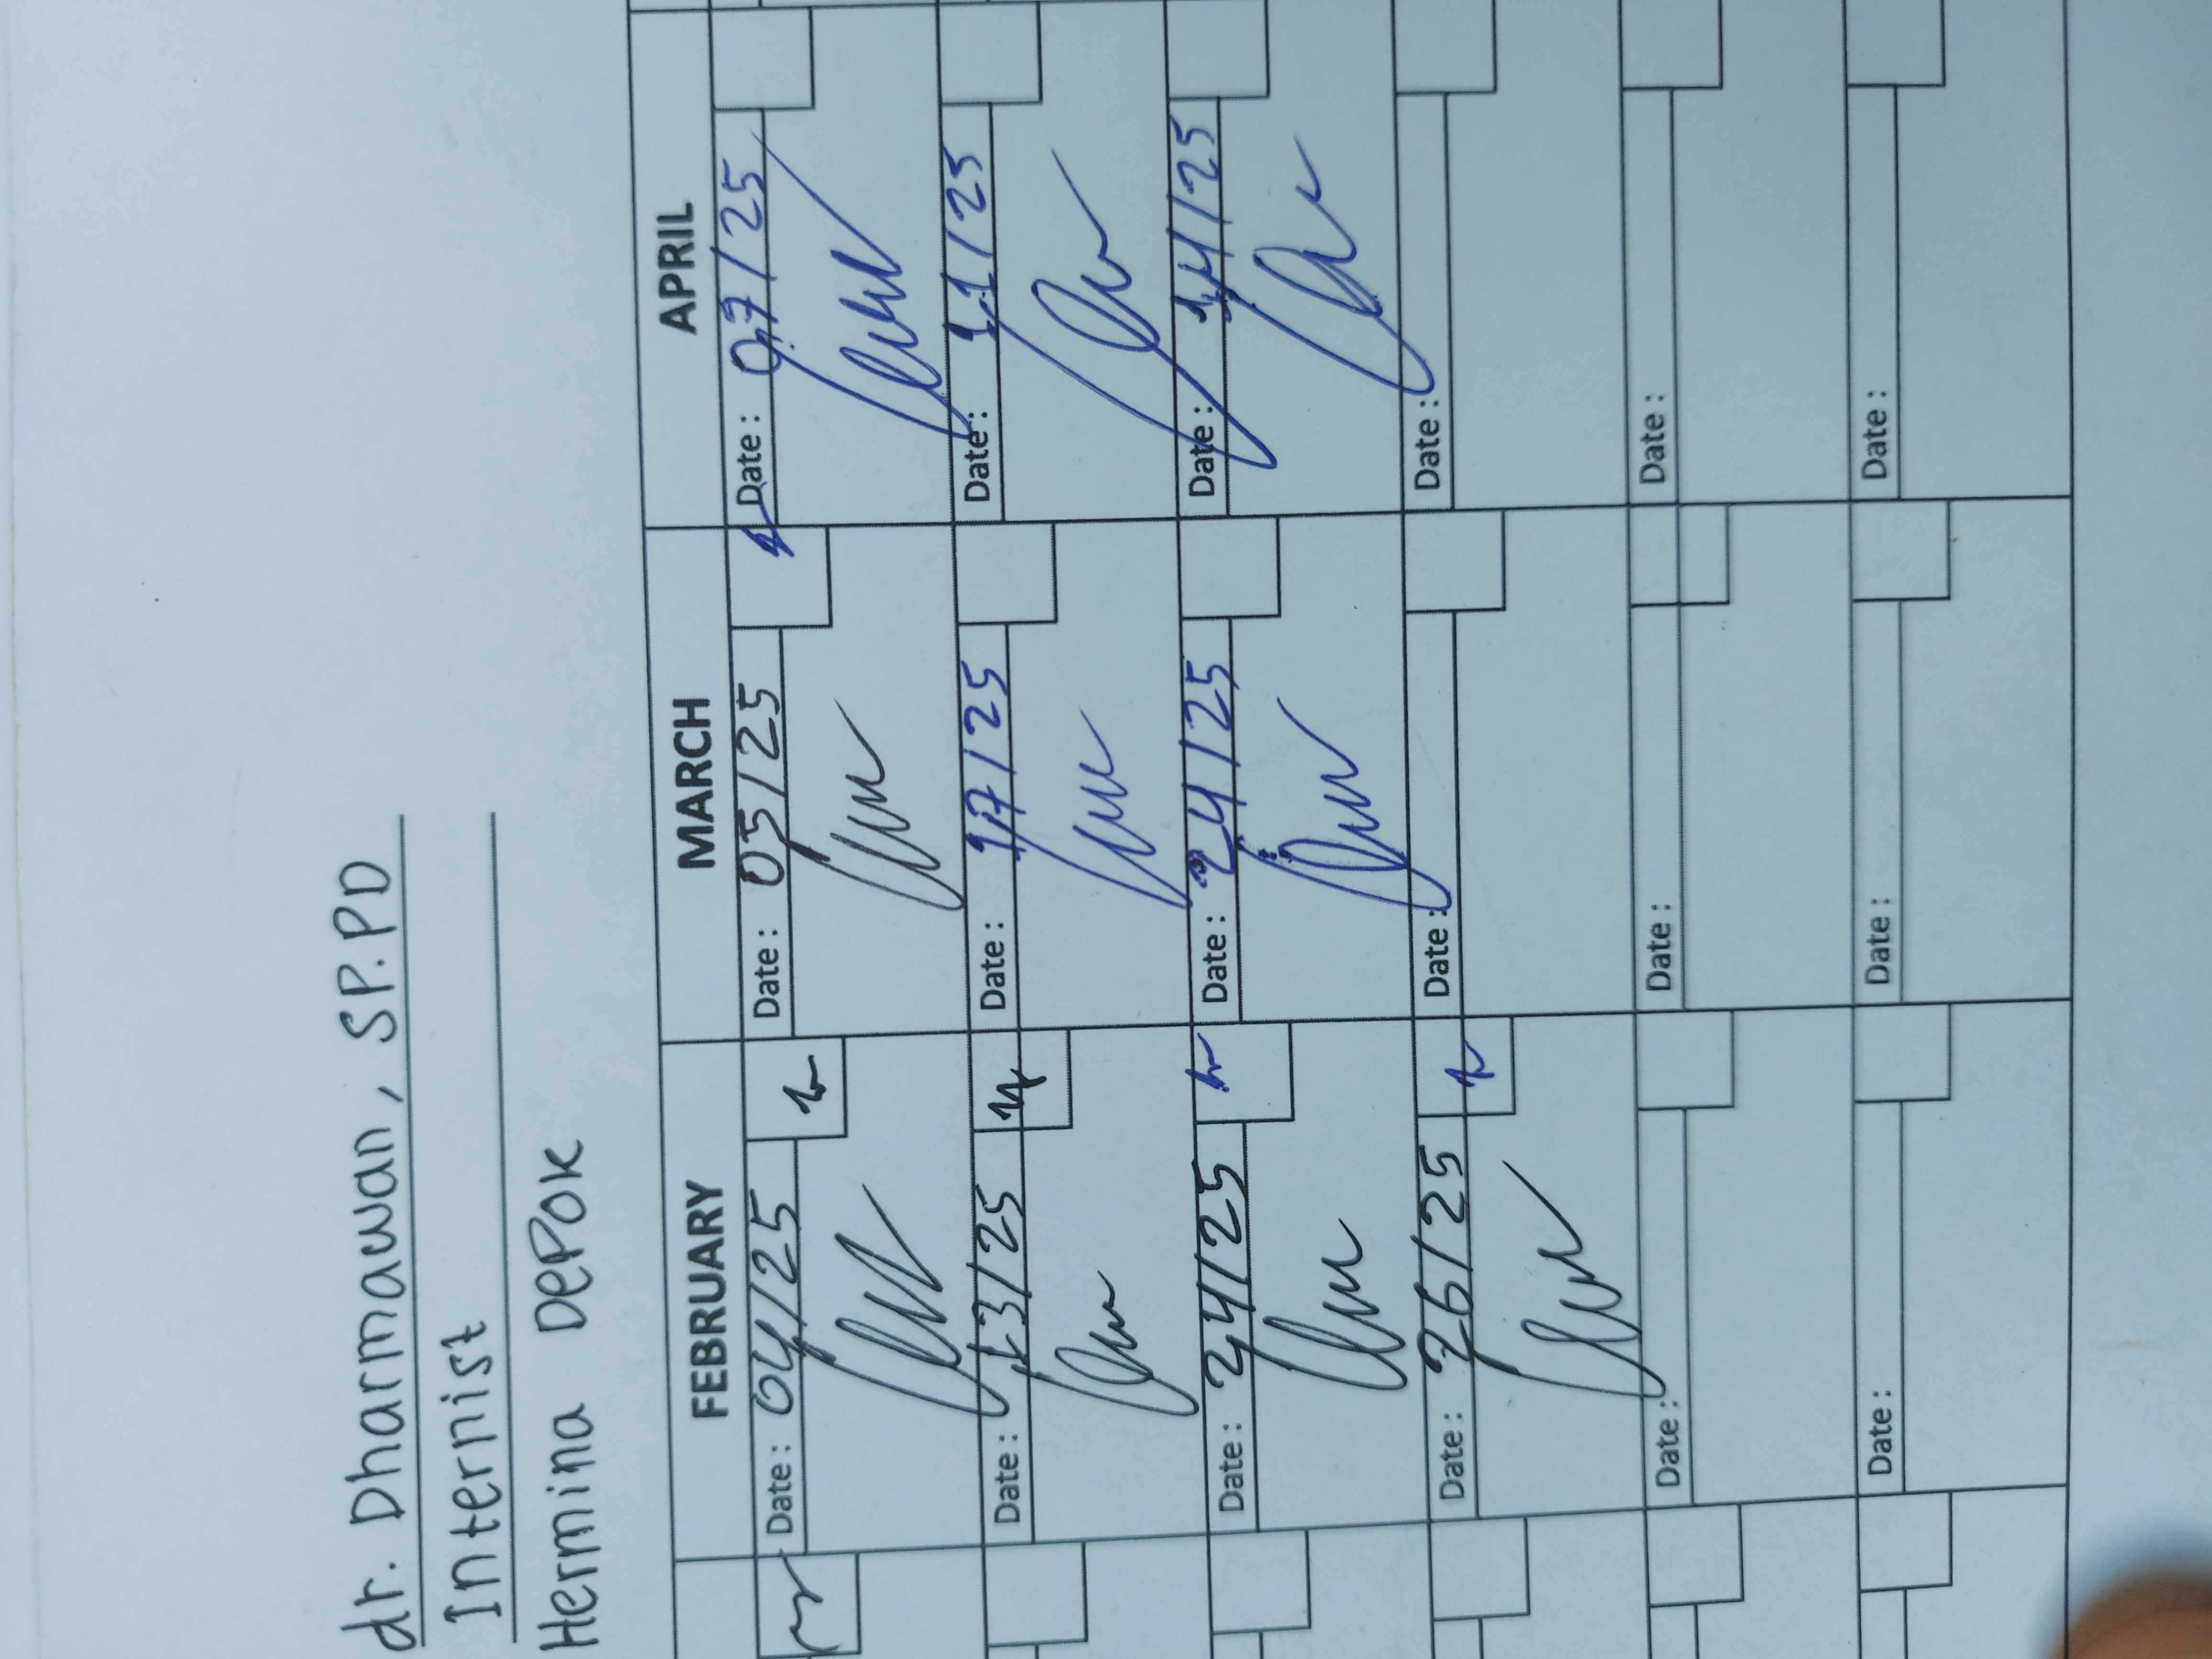 dr. Dharmawan, SP.PD
Internist
Hermina DePok
FEBRUARY MARCH APRIL
Date : 04/25 Date : 05/25 Date : 07/25
Date : 13/25 Date : 17/25 Date : 11/25
Date : 24/25 Date : 24/25 Date : 14/25
Date : 26/25 Date : Date :
Date : Date : Date :
Date : Date : Date :